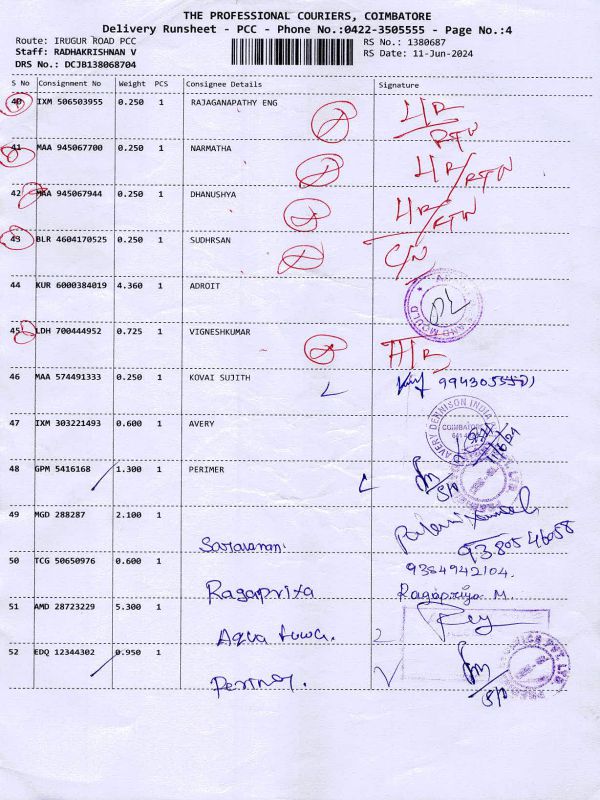 THE PROFESSIONAL COURIERS, COIMBATORE
Delivery Runsheet - PCC - Phone No.:0422-3505555 - Page No.:4
Route: IRUGUR ROAD PCC RS No.: 1380687
Staff: RADHAKRISHNAN V RS Date: 11-Jun-2024
DRS No.: DCJB138068704
S No Consignment No Weight PCS Consignee Details Signature
40 IXM 506503955 0.250 1 RAJAGANAPATHY ENG
RTN
41 MAA 945067700 0.250 1 NARMATHA
RTN
42 MAA 945067944 0.250 1 DHANUSHYA
RTN
43 BLR 4604170525 0.250 1 SUDHRSAN C/N
44 KUR 6000384019 4.360 1 ADROIT
45 LDH 700444952 0.725 1 VIGNESHKUMAR
46 MAA 574491333 0.250 1 KOVAI SUJITH
47 IXM 303221493 0.600 1 AVERY AVERY DENNISON INDIA
COIMBATORE
11/6/24
48 GPM 5416168 1.300 1 PERIMER
49 MGD 288287 2.100 1
Saravanan
50 TCG 50650976 0.600 1 9384942104.
Ragapriya Ragapriya M.
51 AMD 28723229 5.300 1
Aqua
52 EDQ 12344302 0.950 1